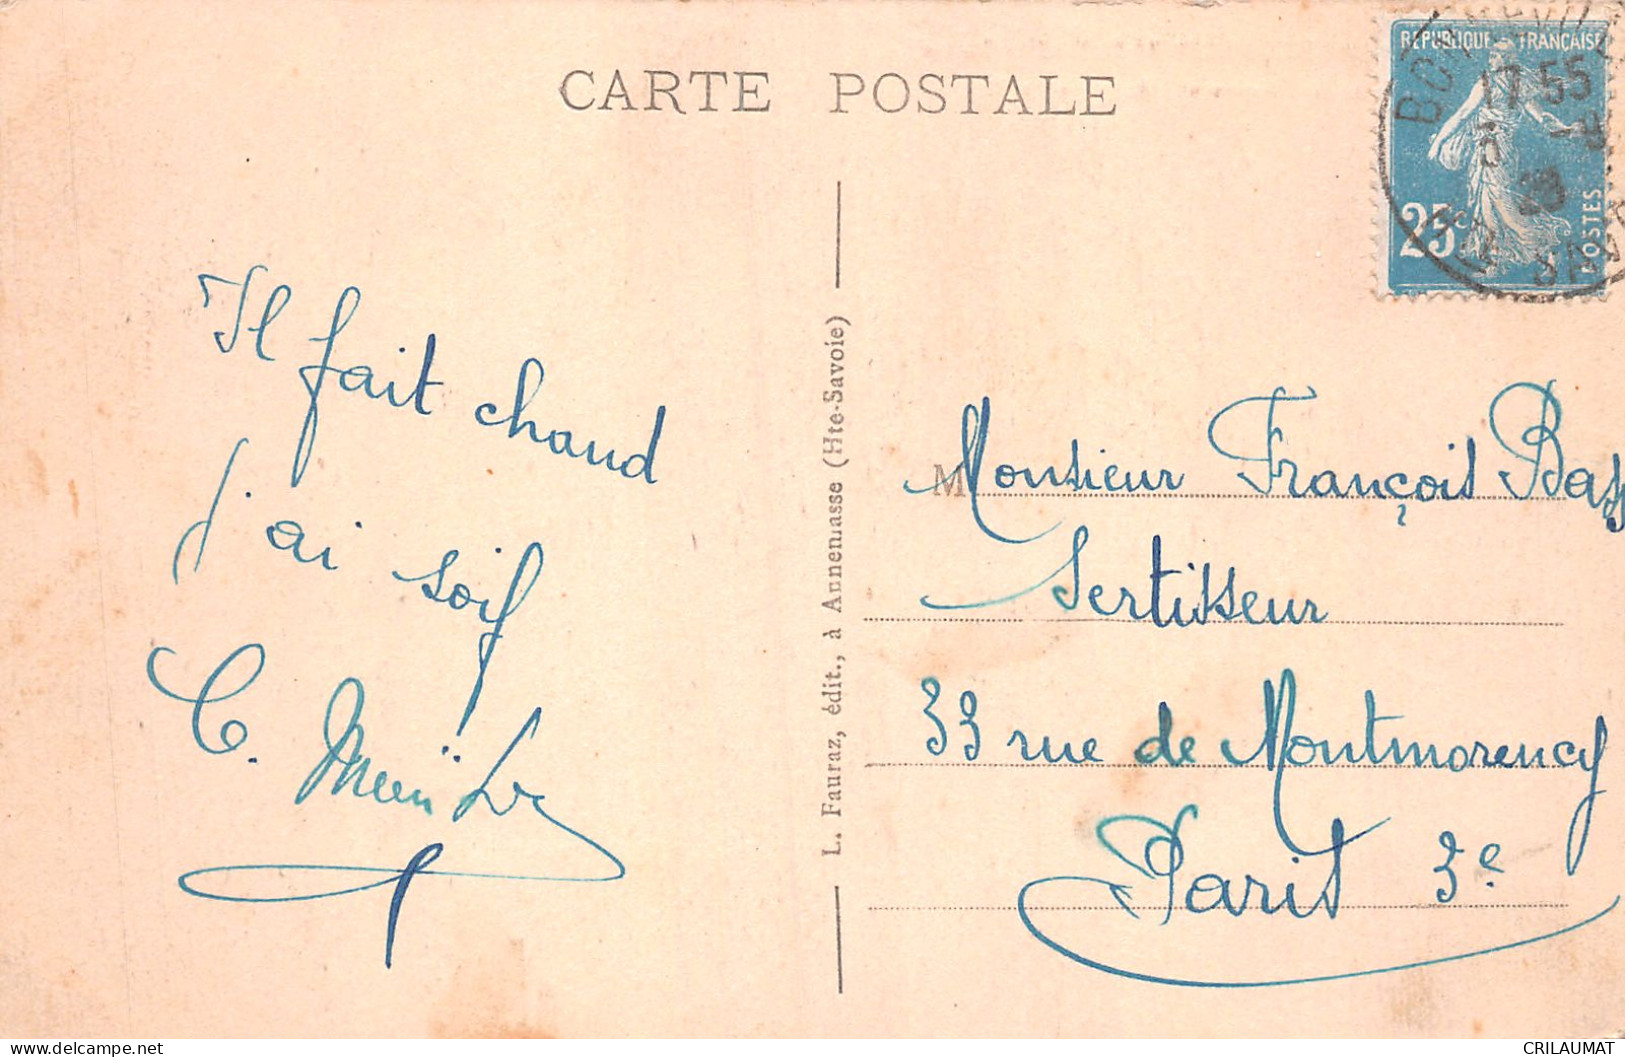 CARTE POSTALE
REPUBLIQUE FRANÇAISE
25c
POSTES
BONNEVILLE
17 55
5 -8
SAV
Il fait chaud
j'ai soif
C.
L. Fauraz, édit., à Annemasse (Hte-Savoie)
M
Monsieur François Bass
Sertisseur
33 rue de Montmorency
Paris 3e
delcampe.net
CRILAUMAT